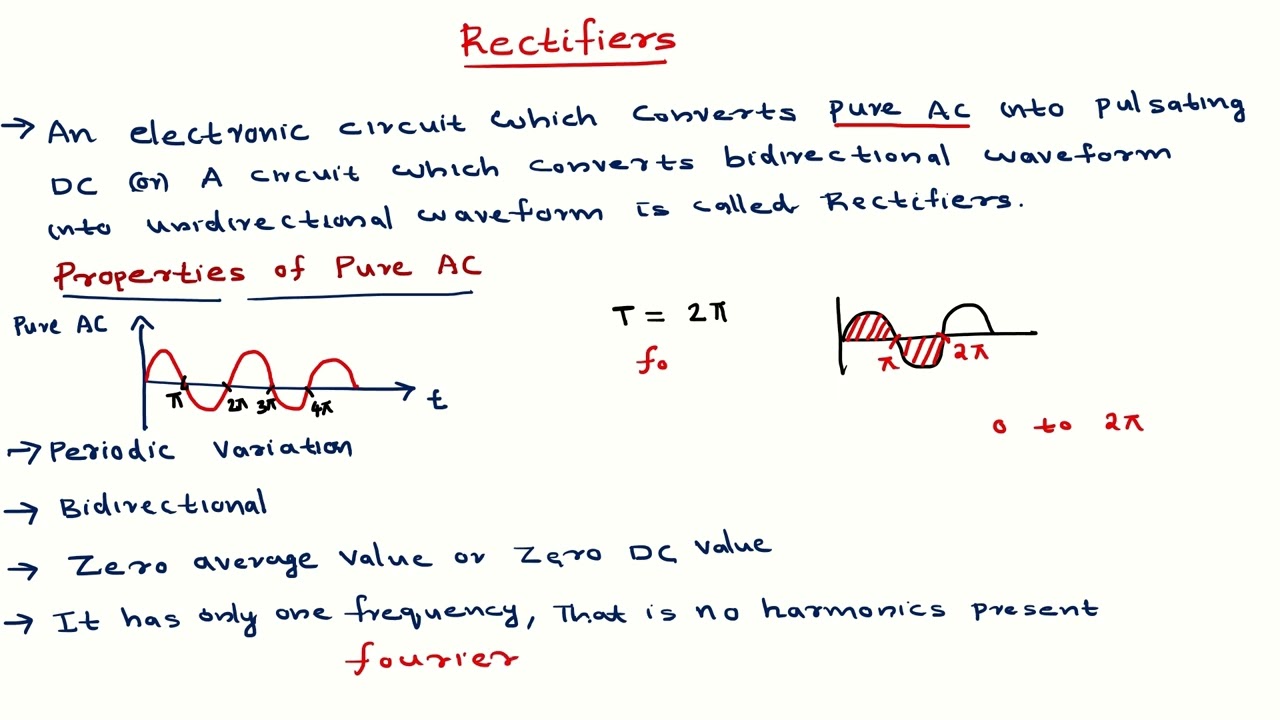 Rectifiers
→ An electronic circuit which converts pure AC into pulsating
DC (or) A circuit which converts bidirectional waveform
into unidirectional waveform is called Rectifiers.
Properties of Pure AC
Pure AC
π 2π 3π 4π
t
T = 2π
fo
π 2π
0 to 2π
→ Periodic Variation
→ Bidirectional
→ Zero average value or Zero DC value
→ It has only one frequency, That is no harmonics present
fourier